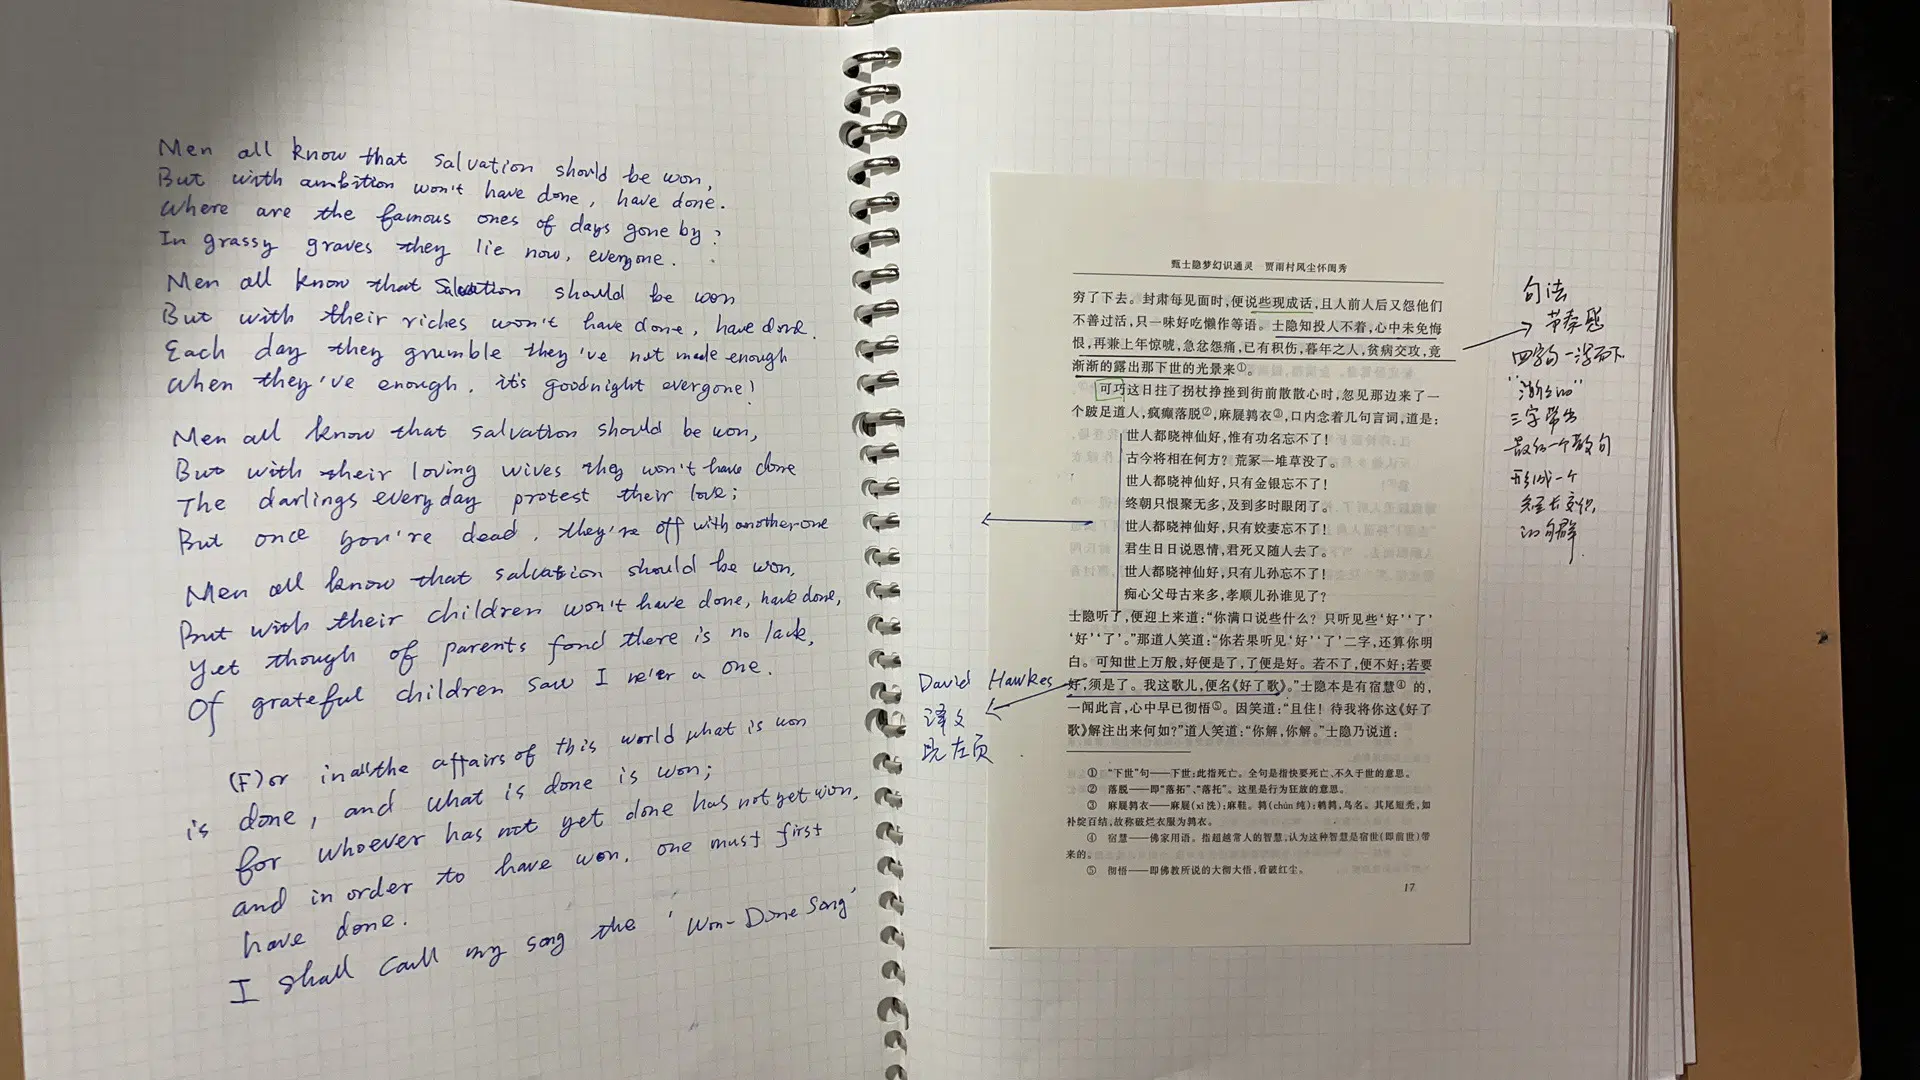 Men all know that salvation should be won,
But with ambition won't have done, have done.
Where are the famous ones of days gone by?
In grassy graves they lie now, everyone.
Men all know that Salvation should be won
But with their riches won't have done, have done.
Each day they grumble they've not made enough
When they've enough, it's goodnight everyone!
Men all know that salvation should be won,
But with their loving wives they won't have done
The darlings everyday protest their love;
But once you're dead, they're off with another one
Men all know that salvation should be won,
But with their children won't have done, have done,
Yet though of parents fond there is no lack,
Of grateful children saw I ne'er a one.
(F)or in all the affairs of this world what is won
is done, and what is done is won;
for whoever has not yet done has not yet won,
and in order to have won, one must first
have done.
I shall call my song the 'Won-Done Song'
甄士隐梦幻识通灵 贾雨村风尘怀闺秀
穷了下去。封肃每见面时,便说些现成话,且人前人后又怨他们
不善过活,只一味好吃懒作等语。士隐知投人不着,心中未免悔
恨,再兼上年惊唬,急忿怨痛,已有积伤,暮年之人,贫病交攻,竟
渐渐的露出那下世的光景来①。
可巧这日拄了拐杖挣挫到街前散散心时,忽见那边来了一
个跛足道人,疯癫落脱②,麻屣鹑衣③,口内念着几句言词,道是:
世人都晓神仙好,惟有功名忘不了!
古今将相在何方?荒冢一堆草没了。
世人都晓神仙好,只有金银忘不了!
终朝只恨聚无多,及到多时眼闭了。
世人都晓神仙好,只有姣妻忘不了!
君生日日说恩情,君死又随人去了。
世人都晓神仙好,只有儿孙忘不了!
痴心父母古来多,孝顺儿孙谁见了?
士隐听了,便迎上来道:“你满口说些什么?只听见些‘好’‘了’
‘好’‘了’。”那道人笑道:“你若果听见‘好’‘了’二字,还算你明
白。可知世上万般,好便是了,了便是好。若不了,便不好;若要
好,须是了。我这歌儿,便名《好了歌》。”士隐本是有宿慧④的,
一闻此言,心中早已彻悟⑤。因笑道:“且住!待我将你这《好了
歌》解注出来何如?”道人笑道:“你解,你解。”士隐乃说道:
① “下世”句——下世:此指死亡。全句是指快要死亡、不久于世的意思。
② 落脱——即“落拓”、“落托”。这里是行为狂放的意思。
③ 麻屣鹑衣——麻屣(xǐ洗):麻鞋。鹑(chún纯):鹌鹑,鸟名。其尾短秃,如
补绽百结,故称破烂衣服为鹑衣。
④ 宿慧——佛家用语。指超越常人的智慧,认为这种智慧是宿世(即前世)带
来的。
⑤ 彻悟——即佛教所说的大彻大悟,看破红尘。
17
David Hawkes
译文
见左页
句法
节奏感
四字句一泻而下
“渐渐的”
三字带出
最后一个散句
形成一个
长短交织
的句群.